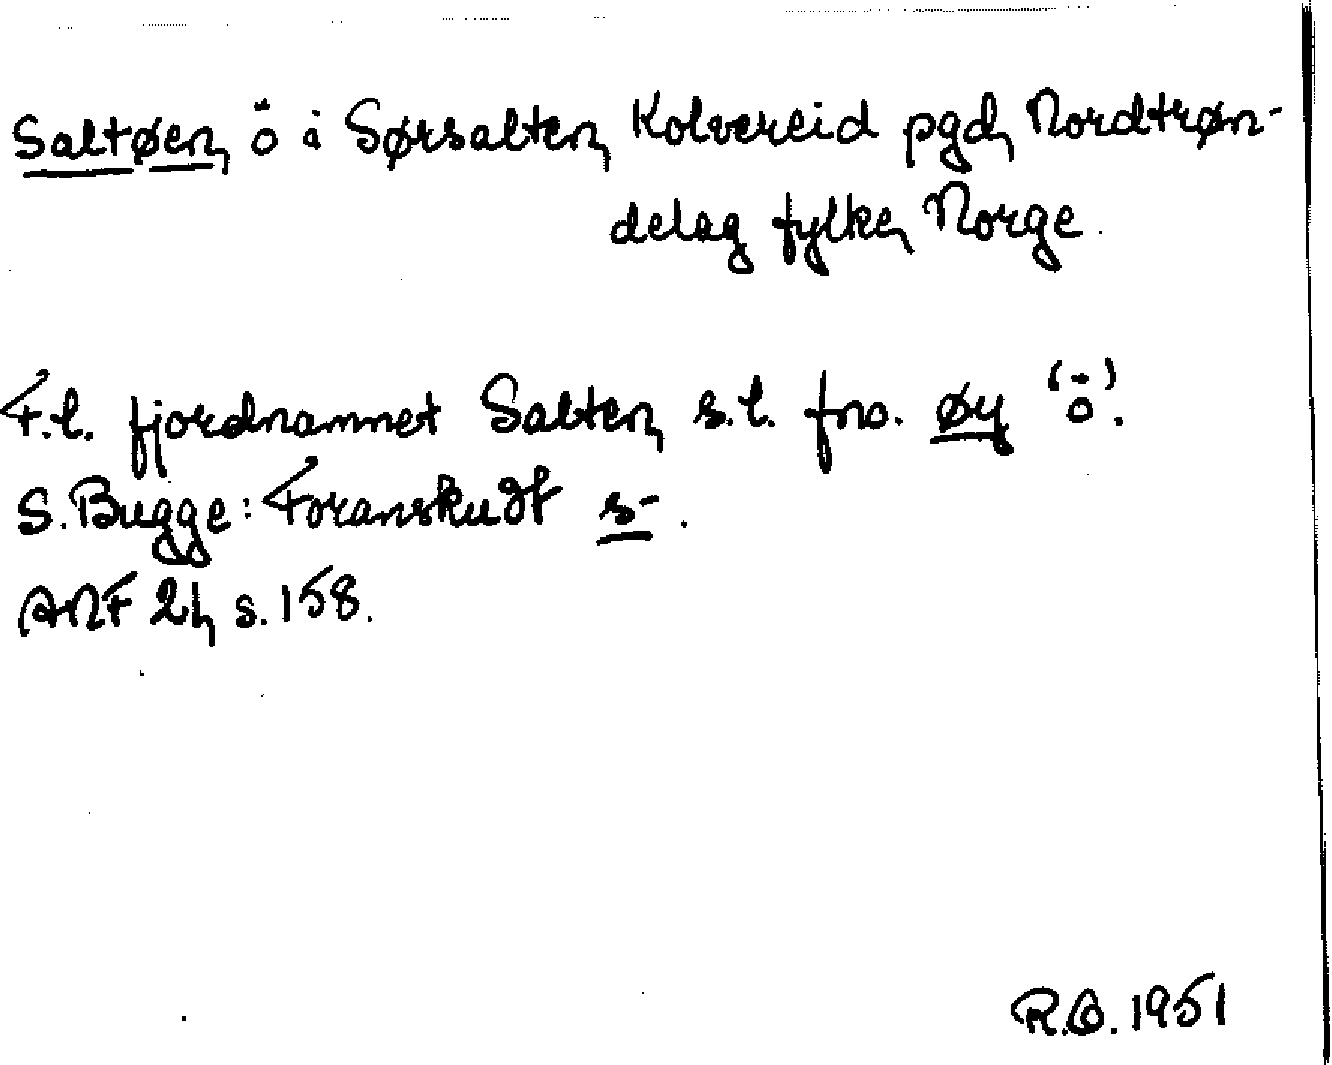 Saltøen, ö i Sørsalten, Kolvereid pgd, Nordtrøn-
delag fylke, Norge.
F.l. fjordnamnet Salten, s.l. fno. øy 'ö'.
S. Bugge: Foranskudt s-.
ANF 21, s. 158.
R.O. 1951